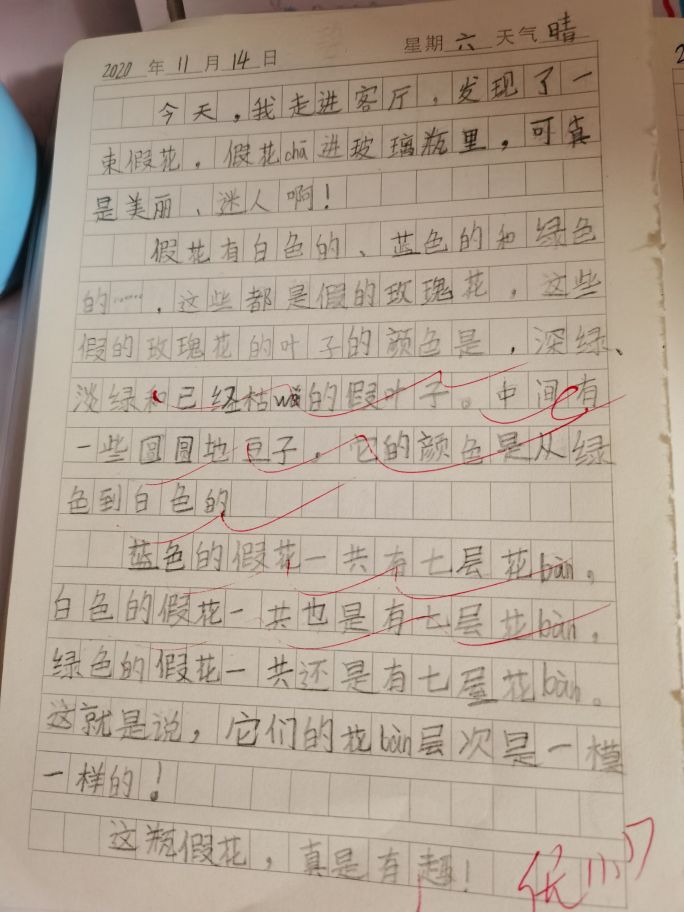 2020 年 11 月 14 日 星期 六 天气 晴
今天，我走进客厅，发现了一
束假花，假花chā进玻璃瓶里，可真
是美丽、迷人啊！
假花有白色的、蓝色的和绿色
的……，这些都是假的玫瑰花，这些
假的玫瑰花的叶子的颜色是，深绿、
淡绿和已经枯wěi的假叶子。中间有
一些圆圆地豆子，它的颜色是从绿
色到白色的
蓝色的假花一共有七层花bàn，
白色的假花一共也是有七层花bàn，
绿色的假花一共还是有七屋花bàn。
这就是说，它们的花bàn层次是一模
一样的！
这瓶假花，真是有趣！